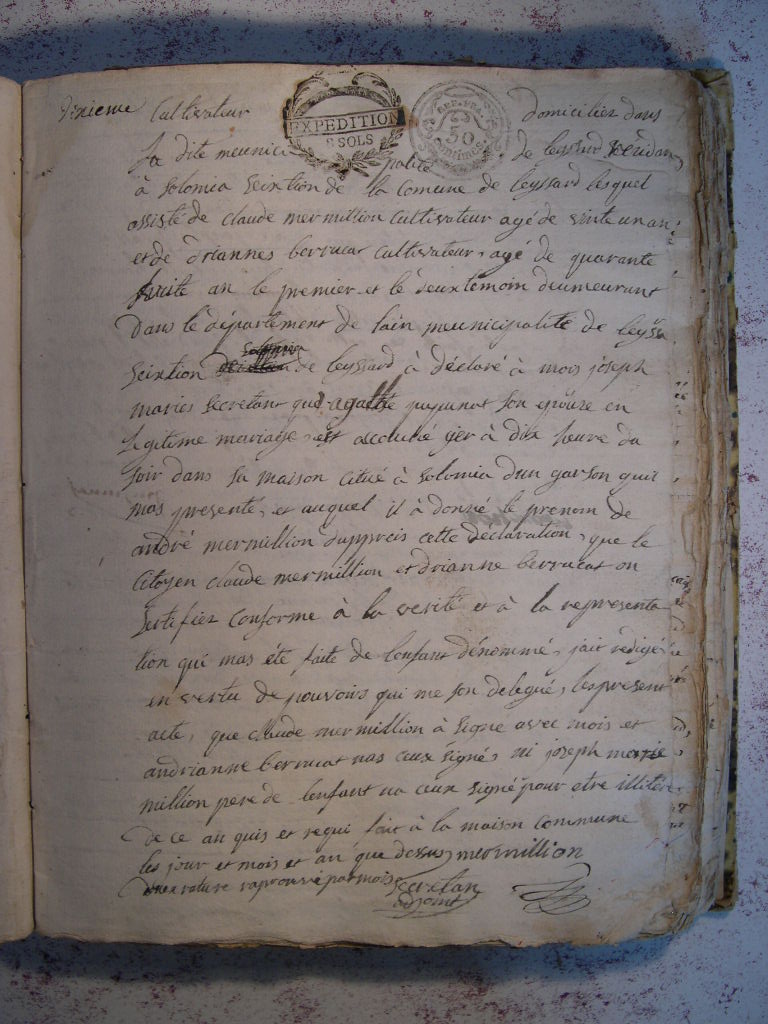 dixieme Cultivateur domiciliez dans
EXPEDITION
8 SOLS
REP. FRA.
50
centimes
la dite meunicipalité de leyssard Residan
à Solomia Seixtion de la Comune de leyssard lesquel
assisté de claude mermillion Cultivateur agé de vinte un an
et de driannes berrucat Cultivateur, agé de quarante
huite an le premier et le deuxtemoin deumeurant
Dans le département de lain meunicipalité de leyssa
Seixtion de leyssard à déclaré à mois joseph
maries Secretant que agathe puyunot Son epouze en
legitime mariage est accouché yer à dix heure du
Soir dans Sa maison Citué à Solomia dun garson quil
mas presenté, et auquel il à donné le prenom de
andré mermillion dappreis cette declaration, que le
Citoyen claude mermillion et drianne berrucat on
Sertifiez Conforme à la verité et à la representa
tion qui mas été faite de lenfant dénommé, jait redigé
en vertu de pouvoirs qui me son delegué, les present
acte, que claude mermillion à Signé avec mois et
andrianne berrucat nas ceux signé, ni joseph marie
million pere de lenfant na ceux Signé pour etre illitéré
de ce an quis et requi fait à la maison Commune
les jour et mois et an que dessus mermillion
rature raprouvé par mois Secretan
adjoint